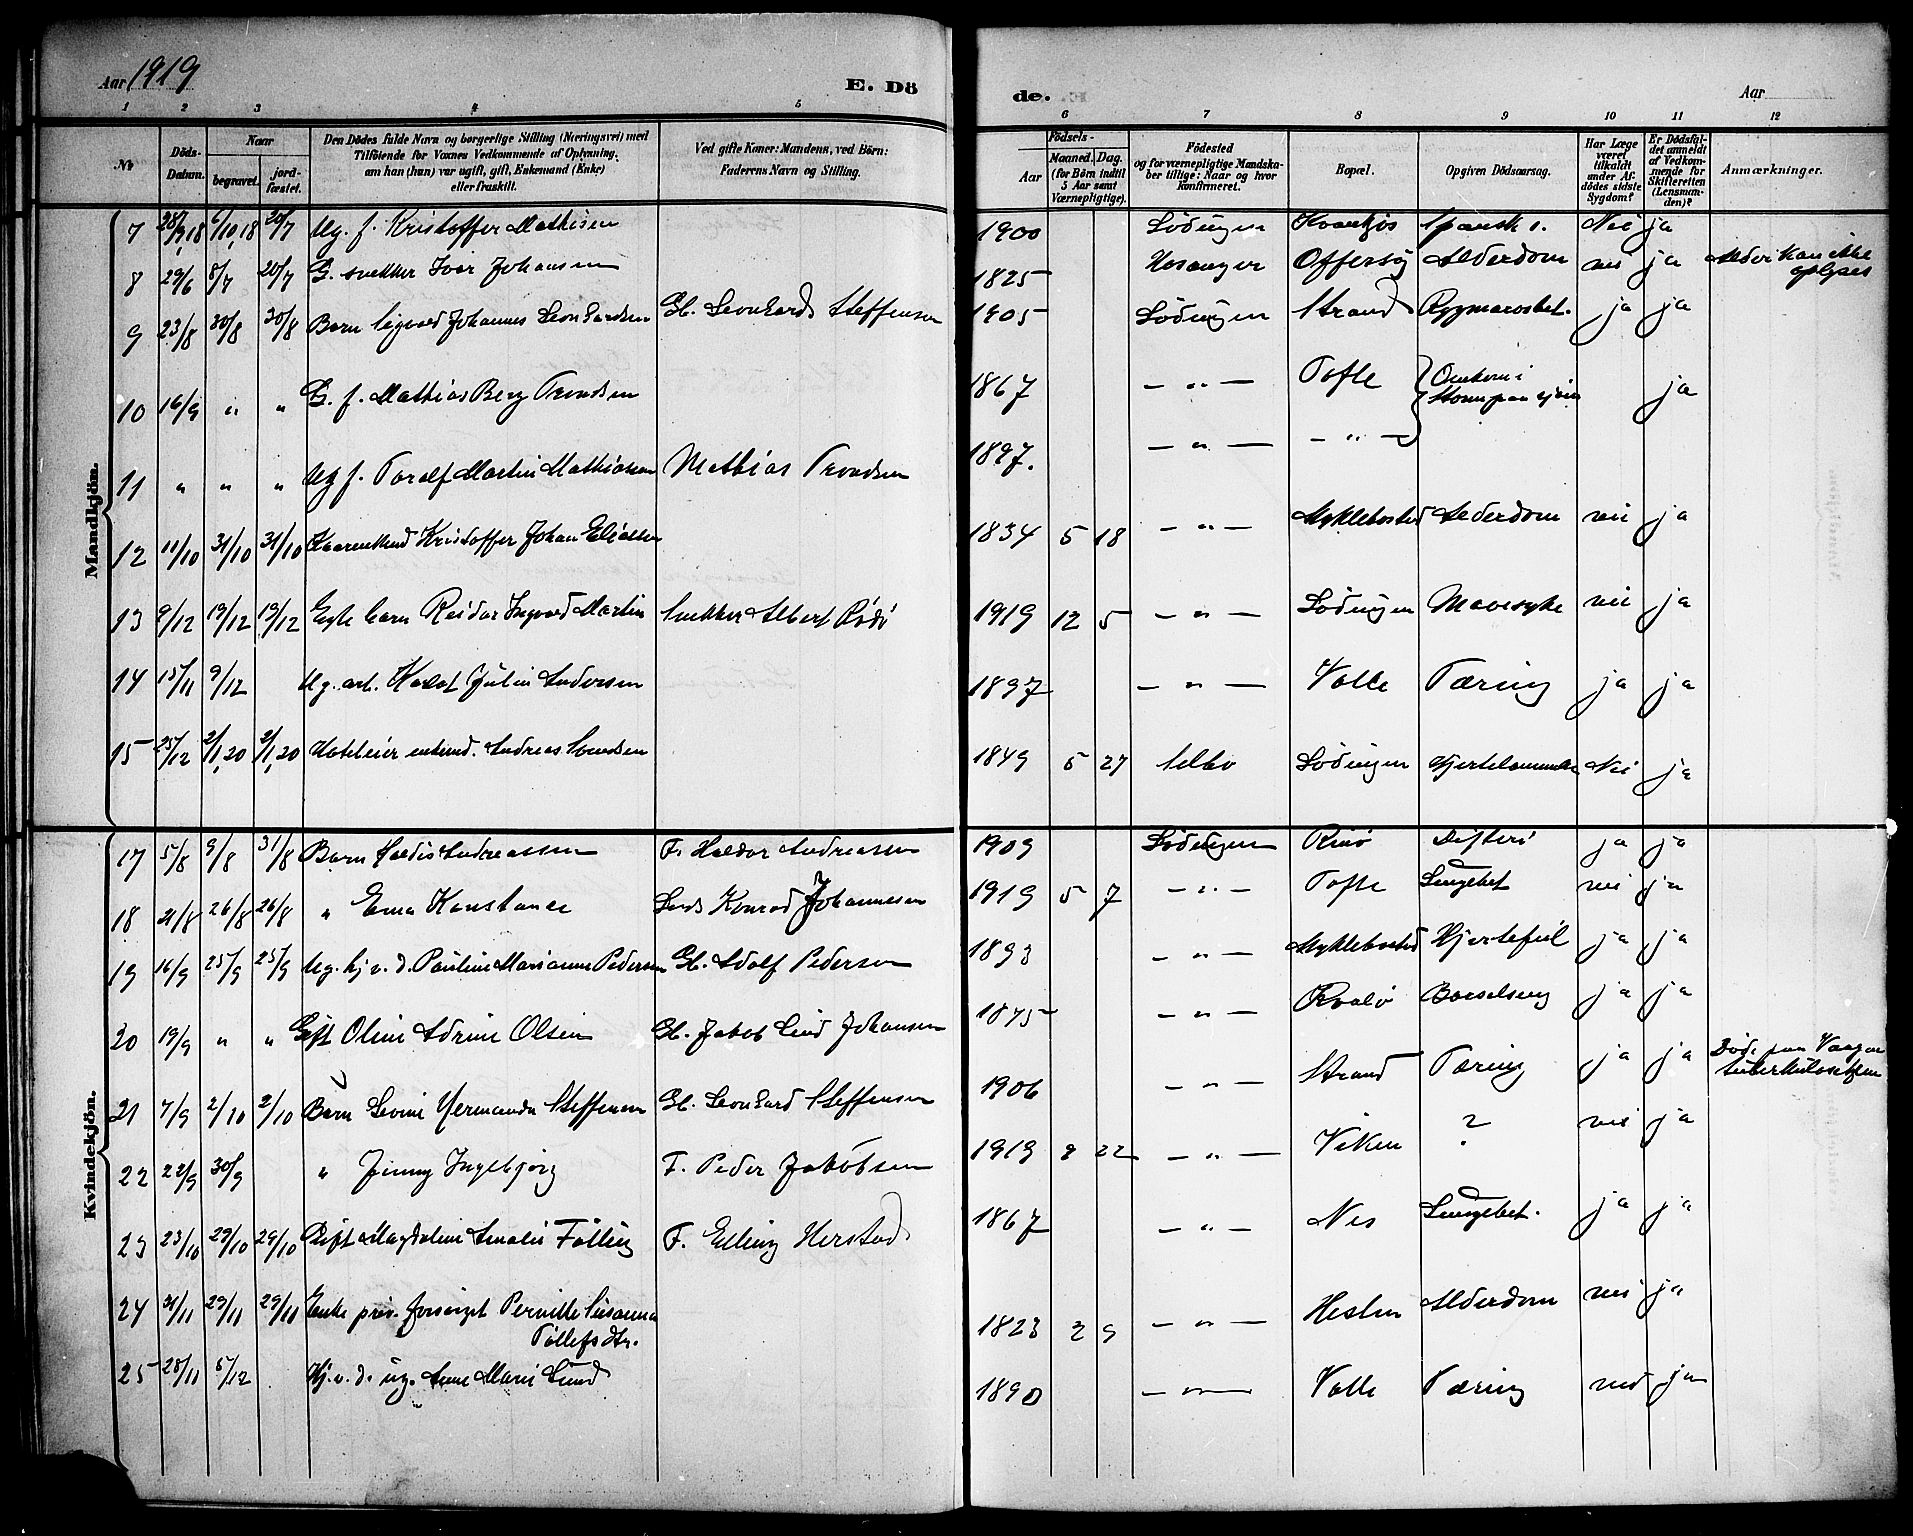 Aar 1919 E. Dö de. Aar
1 2 3 4 5 6 7 8 9 10 11 12
No
Döds-Datum.
Naar
begravet.
jord-fæstet.
Den Dödes fulde Navn og borgerlige Stilling (Næringsvei) med
Tilföiende for Voxnes Vedkommende af Oplysning,
om han (hun) var ugift, gift, Enkemand (Enke)
eller fraskilt.
Ved gifte Koner: Mandens, ved Börn:
Faderens Navn og Stilling.
Födsels-
Aar
Maaned. Dag.
(for Börn indtil
5 Aar samt
Værnepligtige).
Födested
og for værnepligtige Mandska-
ber tillige: Naar og hvor
konfirmeret.
Bopæl.
Opgiven Dödsaarsag.
Har Læge
været
tilkaldt
under Af-
dödes sidste
Sygdom?
Er Dödsfal-
det anmeldt
af Vedkom-
mende for
Skifteretten
(Lensman-
den)?
Anmærkninger.
Mandkjön.
7 28/9,18 6/10,18 20/7 Ug. f. Kristoffer Mathisen 1900 Lødingen Spansk s. Nei ja
8 29/6 8/7 20/7 G. snekker Ivar Johansen 1825 Offersøy Alderdom nei ja Alder kan ikke
oplyses
9 23/8 30/8 30/8 Barn Sigvard Johannes Leonhardsen Gb. Leonhard Steffensen 1905 Lødingen Strand Rygmarvsbet. ja ja
10 16/9 " " G. f. Mathias Berg Trondsen 1867 — " — Tofte Omkom i
Storm paa sjøen ja
11 " " " Ug f. Toralf Martin Mathiassen Mathias Trondsen 1897. — " — — " —
12 11/10 31/10 31/10 Kaarenkmd Kristoffer Johan Eliassen 1834 5 18 — " — Myklebostad Alderdom nei ja
13 9/12 19/12 19/12 Egte barn Reidar Ingvard Martin Snekker Albert Rødø 1919 12 5 — " — Lødingen Mavesyke nei ja
14 15/11 9/12 Ug. arb. Julin Andersen 1897 — " — Volle Tæring ja ja
15 25/12 2/1,20 2/1,20 Hoteleier enkmd. Andreas Svendsen 1849 5 27 Selbo Lødingen Hjertelammelse Nei ja
Kvindekjön.
17 5/8 9/8 31/8 Barn Andreassen F. Haldor Andreassen 1909 Lødingen Rinø Difteri ja ja
18 21/8 26/8 26/8 " Erna Konstance Konrad Johannesen 1919 5 7 — " — Tofte Lungebet nei ja
19 16/9 25/9 25/9 Ug. hj. v. d. Pauline Marianne Pedersen Gb. Adolf Pedersen 1893 — " — Myklebostad Hjertefeil ja ja
20 19/9 " " Gift Oline Adrine Olsen Gb. Jakob Lind Johansen 1875 — " — Kvalø Barselseng ja ja
21 7/9 2/10 2/10 Barn Levine Hermanda Steffensen Gb. Leonhard Steffensen 1906 — " — Strand Tæring ja ja Døde paa Vaagen
tuberkulosehjem
22 22/9 30/9 " Jenny Ingebjørg F. Peder Jakobsen 1919 8 22 — " — Viken ? nei ja
23 23/10 29/10 29/10 Gift Magdalene Amalie Følling F. Elling Herstad 1867 — " — Nes Lungebet. ja ja
24 21/11 29/11 29/11 Enke priv. forsørget Pernille Susanna
Tollefsdtr. 1823 2 9 — " — Hesten Alderdom nei ja
25 28/11 5/12 Hj. v. d. ug. Anne Marie Lund 1890 — " — Volle Tæring nei ja